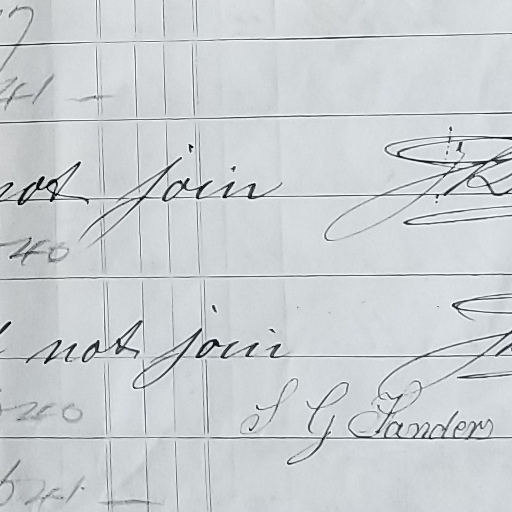 41 —
not join
240
not join
240
S G Sanders
641 —